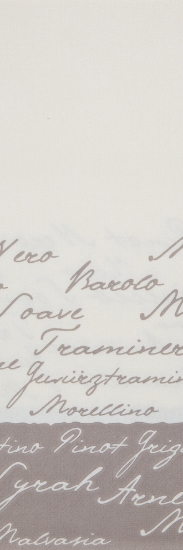 Vero
Barolo
Soave
Traminer
Gewürztramin
Morellino
tino Pinot Grig
Syrah Arne
Malvasia